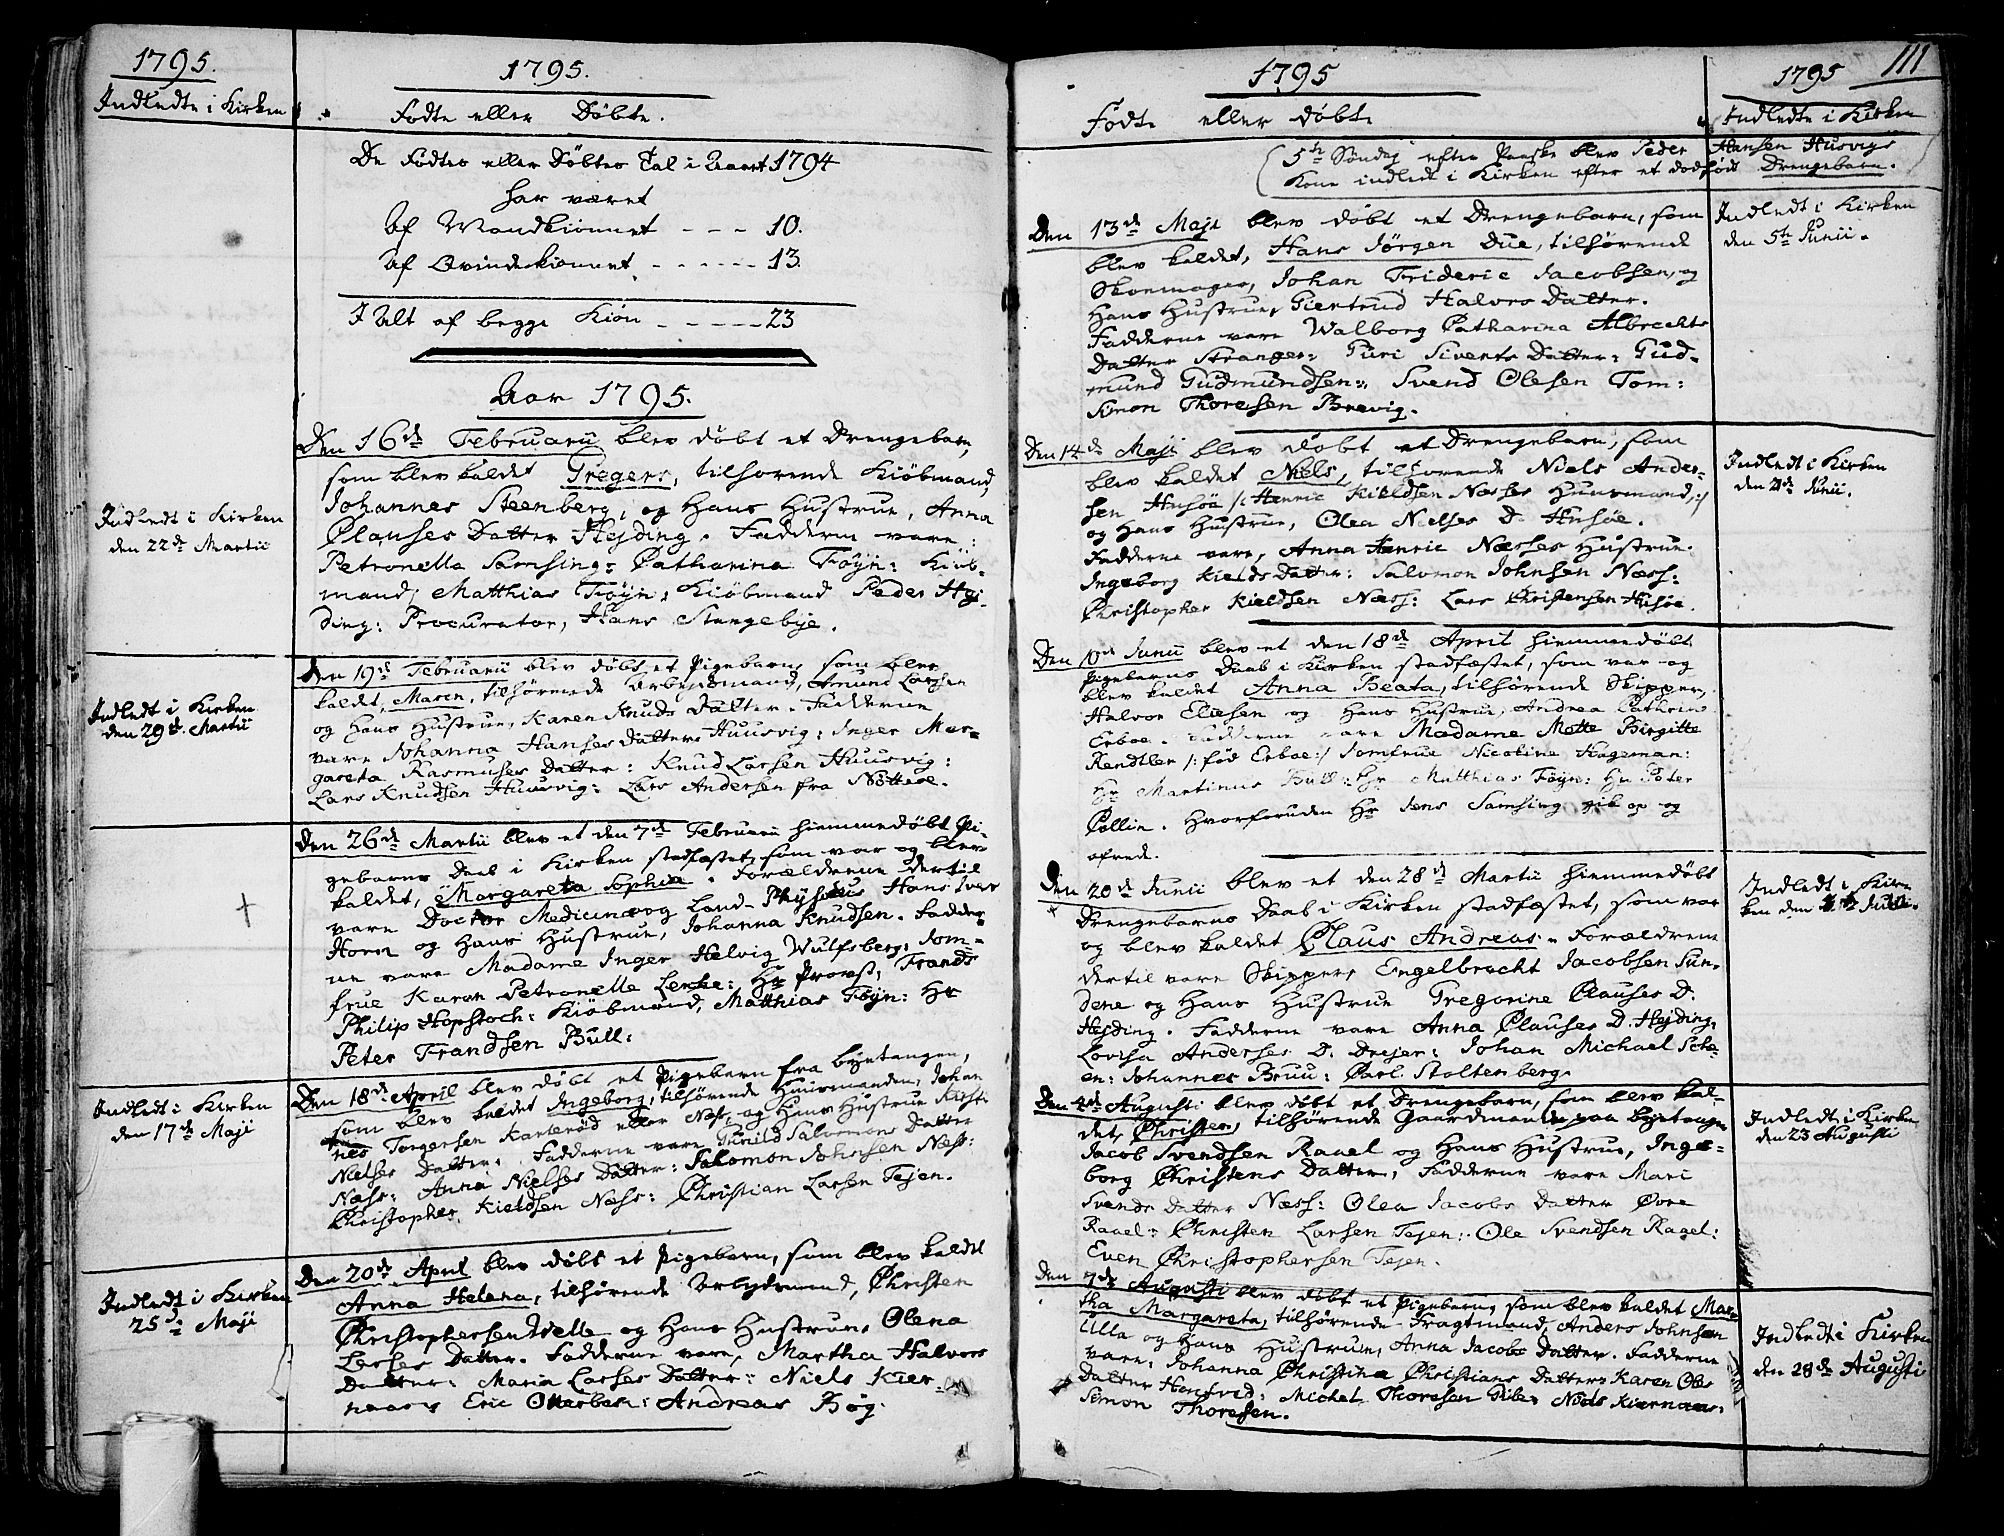 1795.
Indledte i Kirken
1795.
Fødte eller Døbte.
De Fødtes eller Døbtes Tal i Aaret 1794
har været
Af Mandkiønnet - - - 10.
Af Qvindekiønnet - - - - - 13.
I Alt af begge Kiøn - - - - - 23
Aar 1795.
Den 16de Februarii blev døbt et Drengebarn,
som blev kaldet Gregers, tilhørende Kiøbmand,
Johannes Steenberg, og Hans Hustrue, Anna
Clauses Datter Hejding. Fadderne vare:
Petronella Samsing: Catharina Føyn: Kiøb-
mand, Matthias Føyn: Kiøbmand Peder Hej-
ding: Procurator, Hans Stangebye.
Indledt i Kirken
den 22de Martii
Den 19de Februarii blev døbt et Pigebarn, som blev
kaldet, Maren, tilhørende Arbejdsmand, Amund Larsen
og Hans Hustrue, Karen Knuds Datter. Fadderne
vare Johanna Hanses Datter Huusvig: Inger Mar-
gareta Rasmuses Datter: Knud Larsen Huusvig:
Lars Knudsen Huusvig: Lars Andersen fra Nøtterøe.
Indledt i Kirken
den 29de Martii
Den 26de Martii blev et den 7de Februarii hiemmedøbt Pi-
gebarns Daab i Kirken stadfæstet, som var og blev
kaldet, Margareta Sophia. Forældrene dertil
vare Doctor Medicinæ og Land-Physicus Hans Iver
Horn og Hans Hustrue, Johanna Knudsen. Fadder-
ne vare Madame Inger Helvig Wulfsberg: Jom-
frue Karen Petronelle Lenke: Hr Provst, Frands
Philip Hopstoch: Kiøbmand, Matthias Føyn: Hr
Peter Frandsen Bull:
+
Den 18de April blev døbt et Pigebarn fra byetangen,
som blev kaldet Ingeborg, tilhørende Huusmanden, Johan
nes Torgersen Karterød eller Næs, og Hans Hustrue Kirsti
Nielses Datter. Fadderne vare Gunild Salomons Datter
Næss: Anna Nielses Datter: Salomon Johnsen Næss:
Christopher Kieldsen Næss: Christian Larsen Tejen.
Indledt i Kirken
den 17de Maji
Den 20de April blev døbt et Pigebarn, som blev kaldet
Anna Helena, tilhørende Arbejdsmand, Christen
Christophersen Welle og Hans Hustrue, Olena
Larses Datter. Fadderne vare, Martha Halvors
Datter: Maria Larses Datter: Niels Kier-
naas: Eric Otterbek: Andreas Bøg.
Indledt i Kirken
25de Maji
1795
Fødte eller døbte
1795
111
Indledte i Kirken
5te Søndag efter Paaske blev Peder Hansen Husvigs
Kone indledt i Kirken efter et dødfødt Drengebarn.
Den 13de Maji blev døbt et Drengebarn, som
blev kaldet, Hans Jørgen Due, tilhørende
Skoemager, Johan Frideric Jacobsen, og
Hans Hustrue, Giertrud Halvors Datter.
Fadderne vare Walborg Catharina Albrechts
Datter Stranger: Guri Siverts Datter: Gud-
mund Gudmundsen: Svend Olesen Tom:
Simon Thoresen Brevig.
Indledt i Kirken
den 5te Junii.
Den 14de Maji blev døbt et Drengebarn, som
blev kaldet Niels, tilhørende Niels Ander-
sen Husøe /: Henric Kieldsen Næsses Huusmand, :/
og Hans Hustrue, Olea Nielses D. Husøe.
Fadderne vare, Anna Henric Næsses Hustrue.
Ingeborg Kields Datter: Salomon Johnsen Næss:
Christopher Kieldsen Næss: Lars Christensen Husøe.
Indledt i Kirken
den Junii.
Den Junii blev et den 18de April hiemmedøbt
Pigebarns Daab i Kirken stadfæstet, som var og
blev kaldet Anna Beata, tilhørende Skipper,
Halvor Eliesen og Hans Hustrue, Andrea Cathrine
Erboe. Fadderne vare Madame Mette Birgitte
Rendtler /: fød Erboe:/ Jomfrue Nicoline Hageman:
Hr Martinus Bull: Hr Matthias Føyn: Hr Peter
Collin. Hvorforuden Hr Jens Samsing gik op og
ofrede.
Den 20de Junii blev et den 28de Martii hiemmedøbt
+ Drengebarns Daab i Kirken stadfæstet, som var
og blev kaldet Claus Andreas. Forældrene
dertil vare Skipper, Engelbrecht Jacobsen Sun-
dene og Hans Hustrue Gregorine Clauses D.
Hejding. Fadderne vare Anna Clauses D. Hejding:
Lovisa Anderses D. Drejer: Johan Michael Sche-
en: Johannes Bruu: Carl Stoltenberg.
Indledt i Kir-
ken den Julii.
Den 4de Augusti blev døbt et Drengebarn, som blev kal-
det, Christen, tilhørende Gaardmanden paa byetangen
Jacob Svendsen Ravel og Hans Hustrue, Inge-
borg Christens Datter, Fadderne vare Mari
Svends Datter Næss: Olea Jacobs Datter Øvre
Ravel: Christen Larsen Tejen: Ole Svendsen Ravel:
Even Christophersen Tejen.
Indledt i Kirken
den 23 Augusti
Den 7de Augusti blev døbt et Pigebarn, som blev kaldet Mar-
tha Margareta, tilhørende Fragtmand, Anders Johnsen
Ulla og Hans Hustrue, Anna Jacobs Datter. Fadderne
vare: Johanna Christina Christians Datter: Karen Oles
Datter: Michel Thoresen Pile: Niels Kiernaas:
Simon Thoresen.
Indledt i Kirken
den 28de Augusti